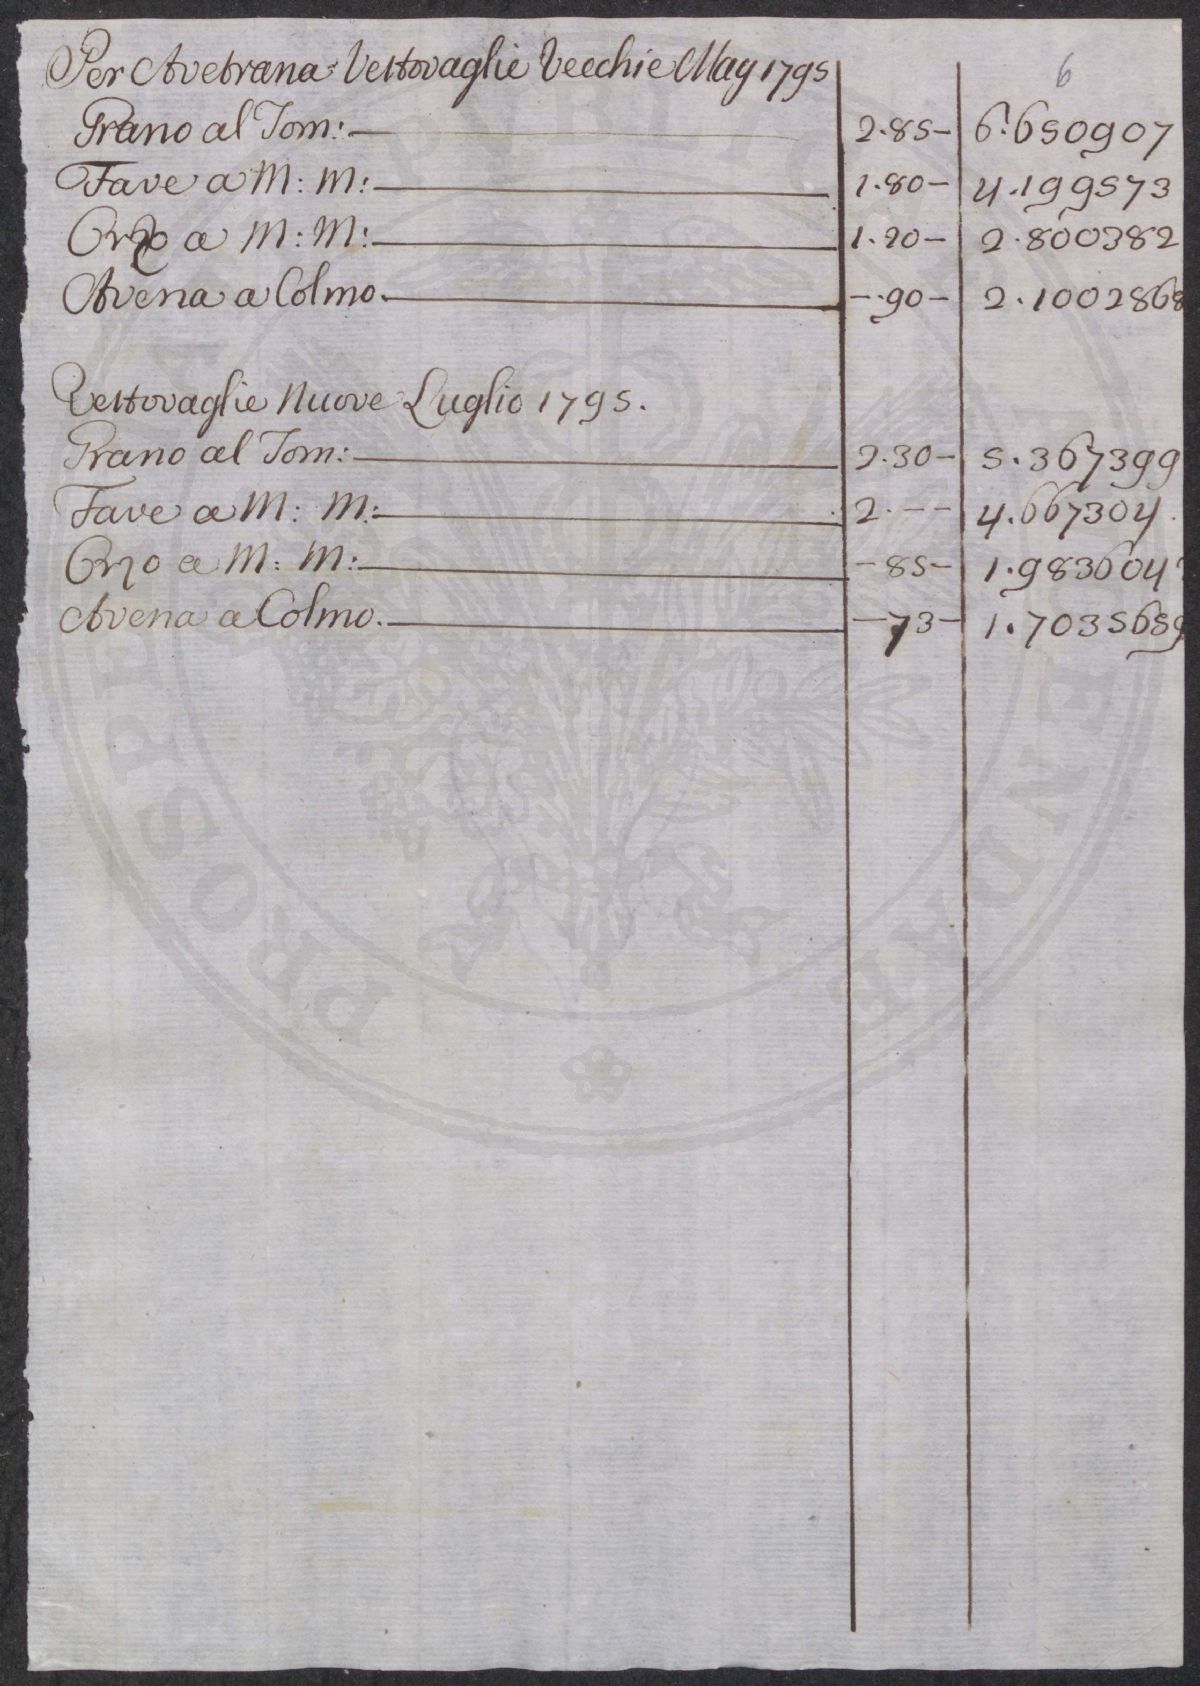 6
Per Avetrana Vettovaglie Vecchie May 1795
Grano al Tom: 2.85- 6.650907
Fave a M: M: 1.80- 4.199573
Orzo a M: M: 1.20- 2.800382
Avena a Colmo. -.90- 2.1002868
Vettovaglie Nuove Luglio 1795.
Grano al Tom: 2.30- 5.367399
Fave a M: M: 2.-- 4.667304
Orzo a M: M: -85- 1.983604
Avena a Colmo. -73- 1.7035659